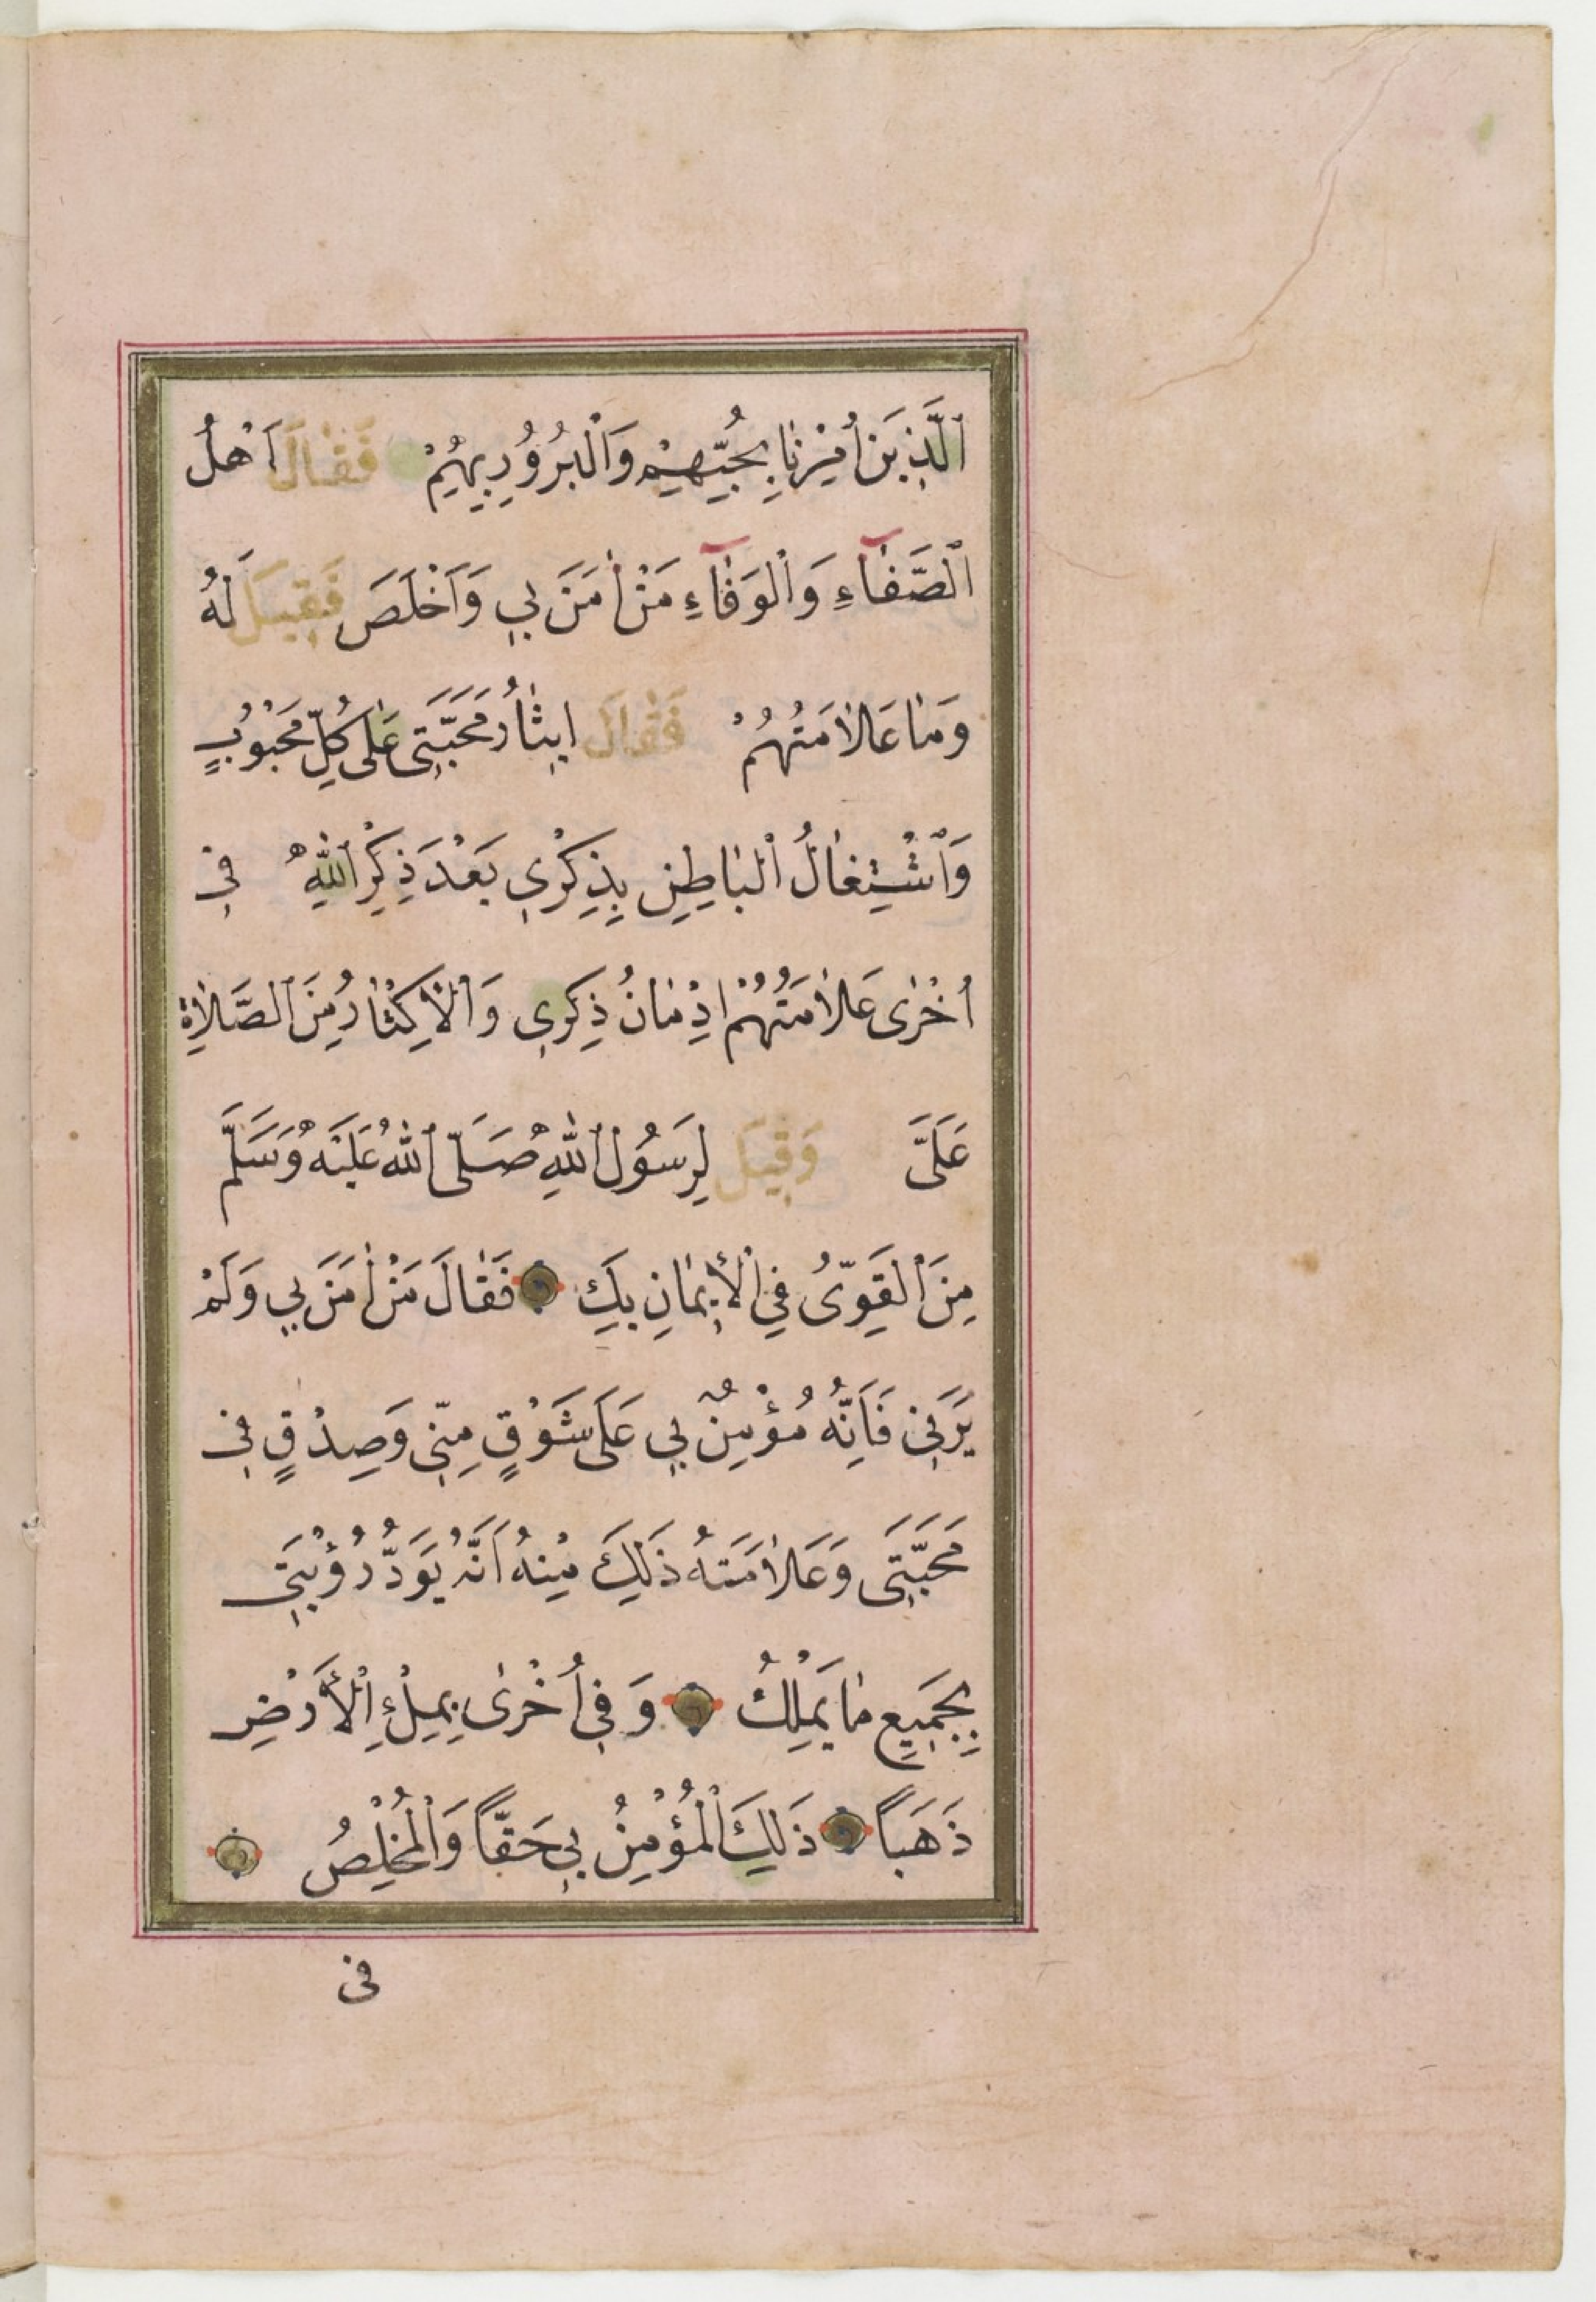 اَلَّذِينَ أُمِرْنَا بِحُبِّهِمْ وَالْبُرُورِ بِهِمْ فَقَالَ اَهْلُ
الصَّفَآءِ وَالْوَفَآءِ مَنْ اٰمَنَ بِي وَاَخْلَصَ فَقِيلَ لَهُ
وَمَا عَلَامَتُهُمْ فَقَالَ اِيثَارُ مَحَبَّتِي عَلٰى كُلِّ مَحْبُوبٍ
وَاشْتِغَالُ الْبَاطِنِ بِذِكْرِي بَعْدَ ذِكْرِ اللهِ فِي
اُخْرٰى عَلَامَتُهُمْ اِدْمَانُ ذِكْرِي وَالْاِكْثَارُ مِنَ الصَّلَاةِ
عَلَيَّ وَقِيلَ لِرَسُولِ اللهِ صَلَّى اللهُ عَلَيْهِ وَسَلَّمَ
مَنِ الْقَوِيُّ فِي الْأِيمَانِ بِكَ فَقَالَ مَنْ اٰمَنَ بِي وَلَمْ
يَرَنِي فَاِنَّهُ مُؤْمِنٌ بِي عَلَى شَوْقٍ مِنِّي وَصِدْقٍ فِي
مَحَبَّتِي وَعَلَامَتُهُ ذَلِكَ مِنْهُ اَنَّهُ يَوَدُّ رُؤْيَتِي
بِجَمِيعِ مَا يَمْلِكُ وَفِي اُخْرٰى بِمِلْءِ الْأَرْضِ
ذَهَبًا ذَلِكَ الْمُؤْمِنُ بِي حَقًّا وَالْمُخْلِصُ
فى